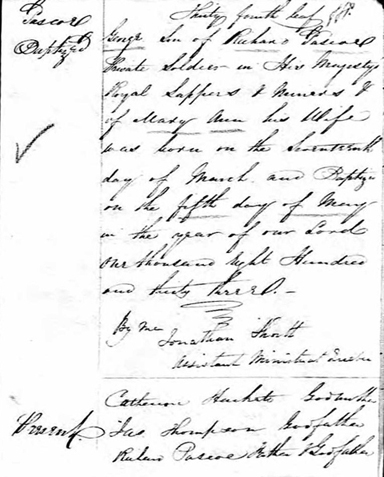 Pascoe
Baptized
Thirty fourth leaf
George Son of Richard Pascoe
Private Soldier in His Majesty's
Royal Sappers & Miners &
of Mary Ann his Wife
was born on the Seventeenth
day of March and Baptized
on the fifth day of May
in the year of our Lord
One thousand eight Hundred
and thirty three.—
By me
Jonathan
Assistant Minister
Present.
Catherine Godmother
Jas Thompson Godfather
Richard Pascoe Father & Godfather